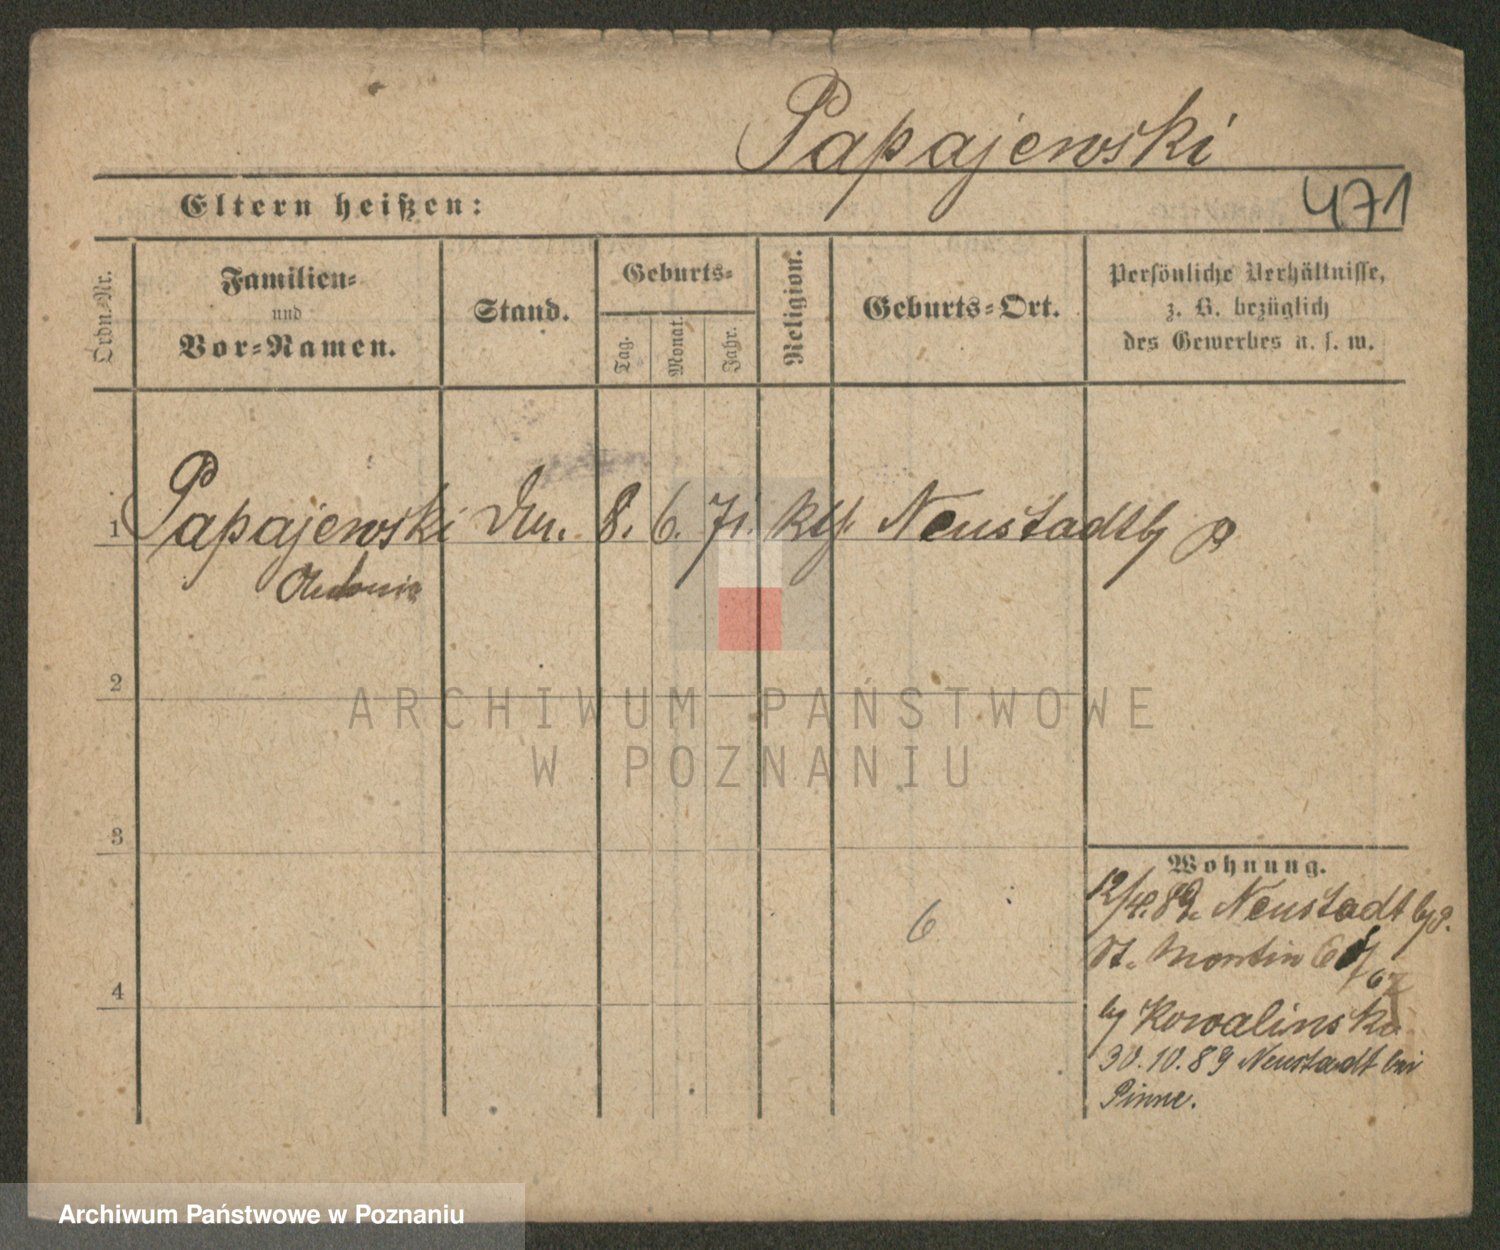 Papajewski
471
Eltern heißen:
Ordn.-Nr.
Familien-
und
Vor-Namen.
Stand.
Geburts-
Tag.
Monat.
Jahr.
Religion.
Geburts-Ort.
Persönliche Verhältnisse,
z. B. bezüglich
des Gewerbes u. s. w.
1 Papajewski 8. 6. 71. kth. Neustadt b/ P
2
3
4
6
Wohnung.
12/4. 89. Neustadt b/ P.
St. Martin
b/ Kowalinska
30.10.89 Neustadt bei
Pinne.
ARCHIWUM PAŃSTWOWE
W POZNANIU
Archiwum Państwowe w Poznaniu